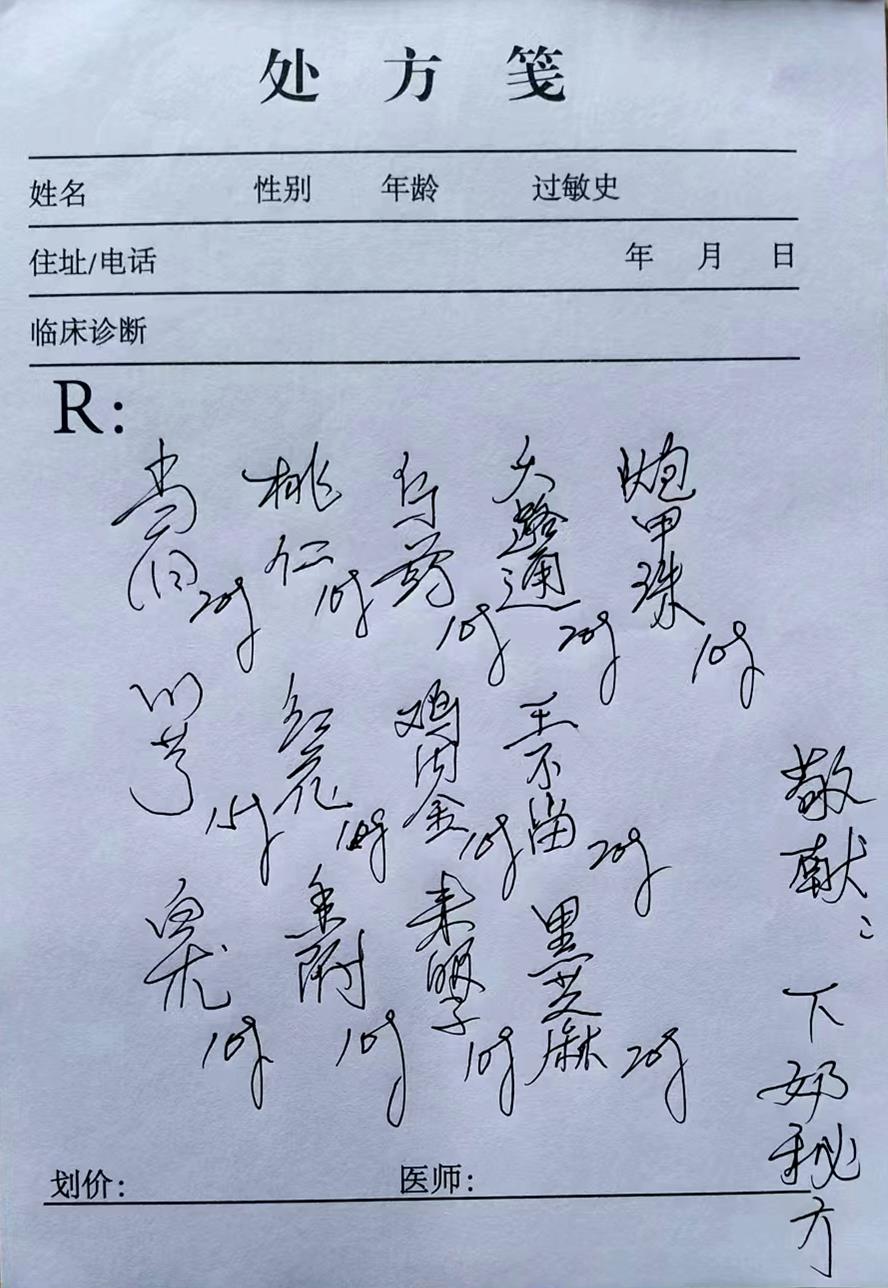 处方笺
姓名 性别 年龄 过敏史
住址/电话 年 月 日
临床诊断
R:
当归 20g 桃仁 10g 10g 大路通 20g 炮甲珠 10g
川芎 15g 红花 10g 鸡内金 10g 王不留 20g
白术 10g 香附 10g 来服子 10g 黑芝麻 20g
敬献:
下奶秘方
划价: 医师: